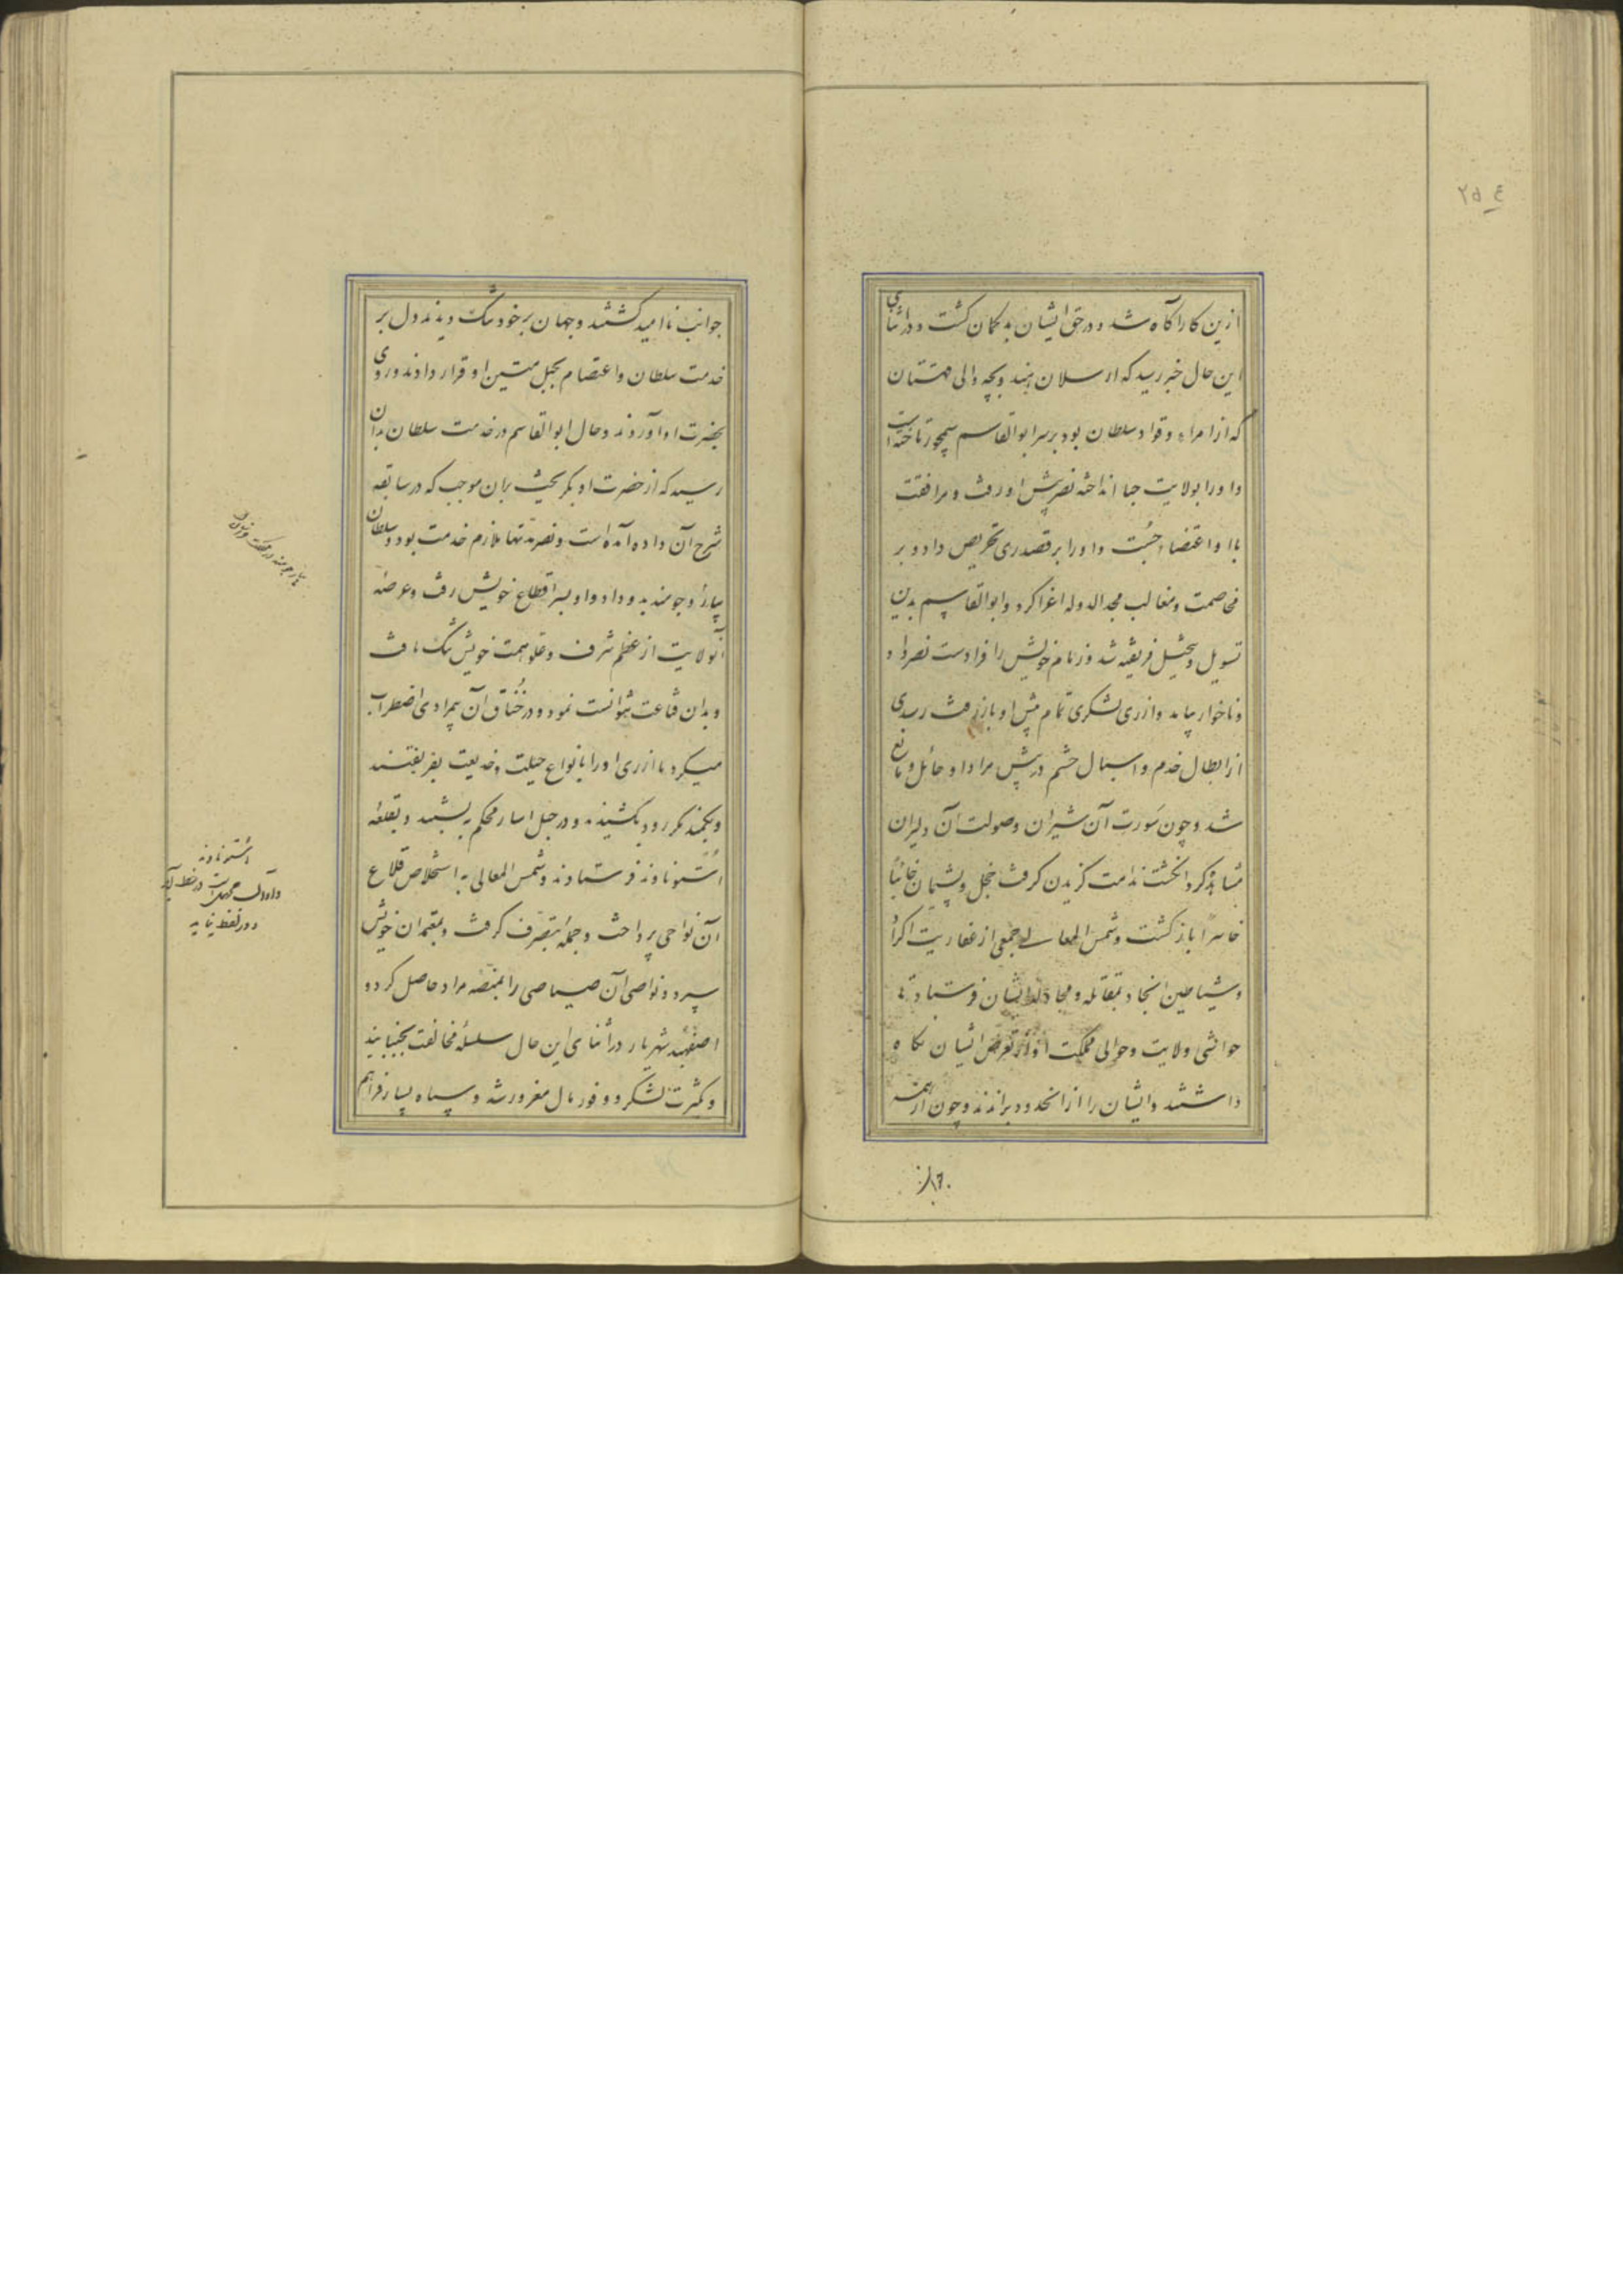 ازین کار آگاه شد و در حق ایشان بدگمان گشت و در اثنای
این حال خبر رسید که ارسلان هندوبچه والی قهستان
که از امراء و قواد سلطان بود بر سر ابوالقاسم سیمجور تاختست
و او را بولایت جنابد انداخته نصر پیش او رفت و مرافقت
با او اعتضاد جُست و او را بر قصد ری تحریص داد و بر
مخاصمت و مغالبت مجد الدوله اغرا کرد و ابوالقاسم بدین
تسویل و تخییل فریفته شد و زمام خویش را فرا دست نصر داد
و تا خوار بیامد و از ری لشکری تمام پیش او باز رفت
از ابطال خدم و اشبال حشم در پیش مراد او حائل و مانع
شد و چون سَورت آن شیران و صولت آن دلیران
مشاهده کرد انگشت ندامت گزیدن گرفت خجل و پشیمان خائباً
خاسراً باز گشت و شمس المعالی جمعی از عفاریت اکراد
و شیاطین انجاد بمقاتله و مجادله ایشان فرستاد تا
حواشی ولایت و حوالی مملکت او از تعرض ایشان نگاه
داشتند و ایشان را از آنحدود براندند و چون از همه
جوانب ناامید گشتند و جهان بر خود تنگ دیدند دل بر
خدمت سلطان و اعتصام بحبل متین او قرار دادند و روی
بحضرت او آوردند و حال ابوالقاسم در خدمت سلطان بدان
رسید که از حضرت او بگریخت بران موجب که در سابقه
شرح آن داده آمده است و نصر مدتها ملازم خدمت بود و سلطان
بیار و جومند بدو داد و او بسر اقطاع خویش رفت و عرصه
آن ولایت از عظم شرف و علو همت خویش تنگ یافت
و بدان قناعت نتوانست نمود و در خُناق آن بیمرادی اضطراب
میکرد تا از ری او را بانواع حیلت و خدیعت بفریفتند
و بکمند مکر در بکشیدند و در حبل اسار محکم ببستند و بقلعه
اُستوناوند فرستادند و شمس المعالی به استخلاص قلاع
آن نواحی پرداخت و جمله بتصرف گرفت و بمعتمدان خویش
سپرد و نواصی آن صیاصی را بمنصّه مراد حاصل کرد و
اصفهبد شهریار در اثنای این حال سلسله مخالفت بجنبانید
و بکثرت لشکر و وفور مال مغرور شد و سپاه بسیار فراهم
اُستوناوند